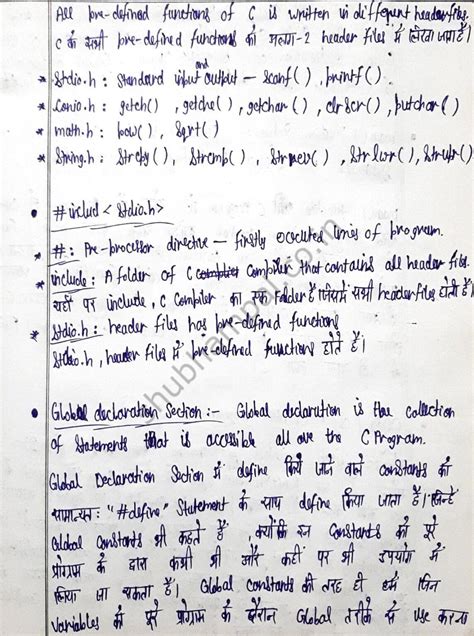 All pre-defined functions of C is written in different header files.
C के सभी pre-defined functions को अलग-2 header files में लिखा जाता है।
* Stdio.h : Standard input and output – Scanf( ), printf( )
* Conio.h : getch( ) , getche( ) , getchar ( ) , clrScr( ) , putchar ( )
* math.h : pow( ) , Sqrt( )
* String.h : Strcpy( ) , Strcmp( ) , Strrev( ) , Strlwr( ) , Strupr( )
• # includ < Stdio.h>
* # : Pre-processor directive – firstly executed lines of program.
* include : A folder of C Compiler that contains all header files.
यहाँ पर include , C Compiler का एक folder है जिसमें सभी header files होती हैं।
* Stdio.h : header files has pre-defined functions
Stdio.h , header files में pre-defined functions होते हैं।
• Global declaration Section :- Global declaration is the collection
of Statements that is accessible all over the C Program.
Global Declaration Section में define किये जाने वाले constants को
सामान्यतः "#define" Statement के साथ define किया जाता है। जिन्हें
Global Constants भी कहते हैं , क्योंकि इन Constants को पूरे
प्रोग्राम के द्वारा कभी भी और कहीं पर भी उपयोग में
लिया जा सकता है। Global Constants की तरह ही हमें जिन
variables को पूरे प्रोग्राम के दौरान Global तरीके से use करना
shubhampal.co.in